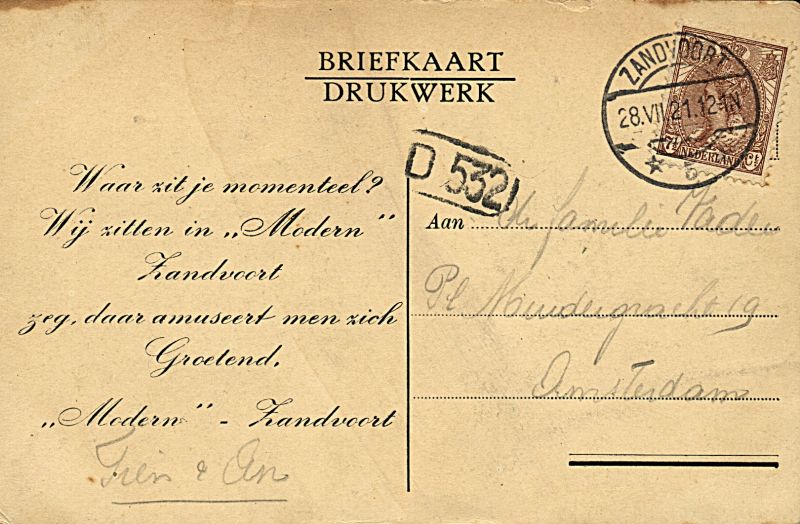 BRIEFKAART
DRUKWERK
ZANDVOORT
28.VII.21.12-1N
5
7½ NEDERLAND Ct
D 532
Waar zit je momenteel?
Wij zitten in „Modern”
Zandvoort
zeg, daar amuseert men zich
Groetend.
„Modern” - Zandvoort
Fien & An
Aan familie Vader
Pl Muidergracht 19
Amsterdam